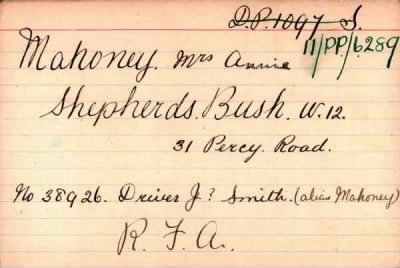 D.P. 1097 S.
11/PP/6289
Mahoney. Mrs Annie
Shepherds. Bush. W.12.
31 Percy. Road.
No 38926. Driver J? Smith. (alias Mahoney)
R. F. A.